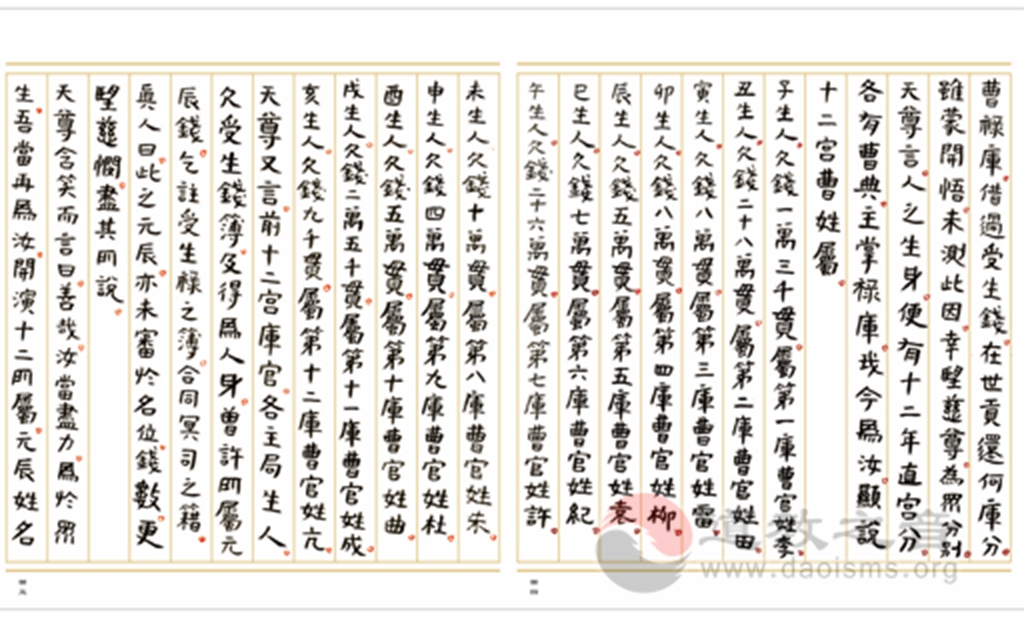 曹祿庫借過受生錢在世貢還何庫分
雖蒙開悟未測此因幸望慈尊為眾分別
天尊言人之生身便有十二年直宮分
各有曹典主掌祿庫我今為汝顯說
十二宮曹姓屬
子生人欠錢一萬三千貫屬第一庫曹官姓李
丑生人欠錢二十八萬貫屬第二庫曹官姓田
寅生人欠錢八萬貫屬第三庫曹官姓雷
卯生人欠錢八萬貫屬第四庫曹官姓柳
辰生人欠錢五萬貫屬第五庫曹官姓袁
巳生人欠錢七萬貫屬第六庫曹官姓紀
午生人欠錢二十六萬貫屬第七庫曹官姓許
未生人欠錢十萬貫屬第八庫曹官姓朱
申生人欠錢四萬貫屬第九庫曹官姓杜
酉生人欠錢五萬貫屬第十庫曹官姓曲
戌生人欠錢二萬五千貫屬第十一庫曹官姓成
亥生人欠錢九千貫屬第十二庫曹官姓亢
天尊又言前十二宮庫官各主局生人
欠受生錢簿及得為人身曾許所屬元
辰錢乞註受生祿之簿合同冥司之籍
真人曰此之元辰亦未審於名位錢數更
望慈憫盡其所說
天尊含笑而言曰善哉汝當盡力為於眾
生吾當再為汝開演十二所屬元辰姓名
道教之音
www.daoisms.org
四四
四五